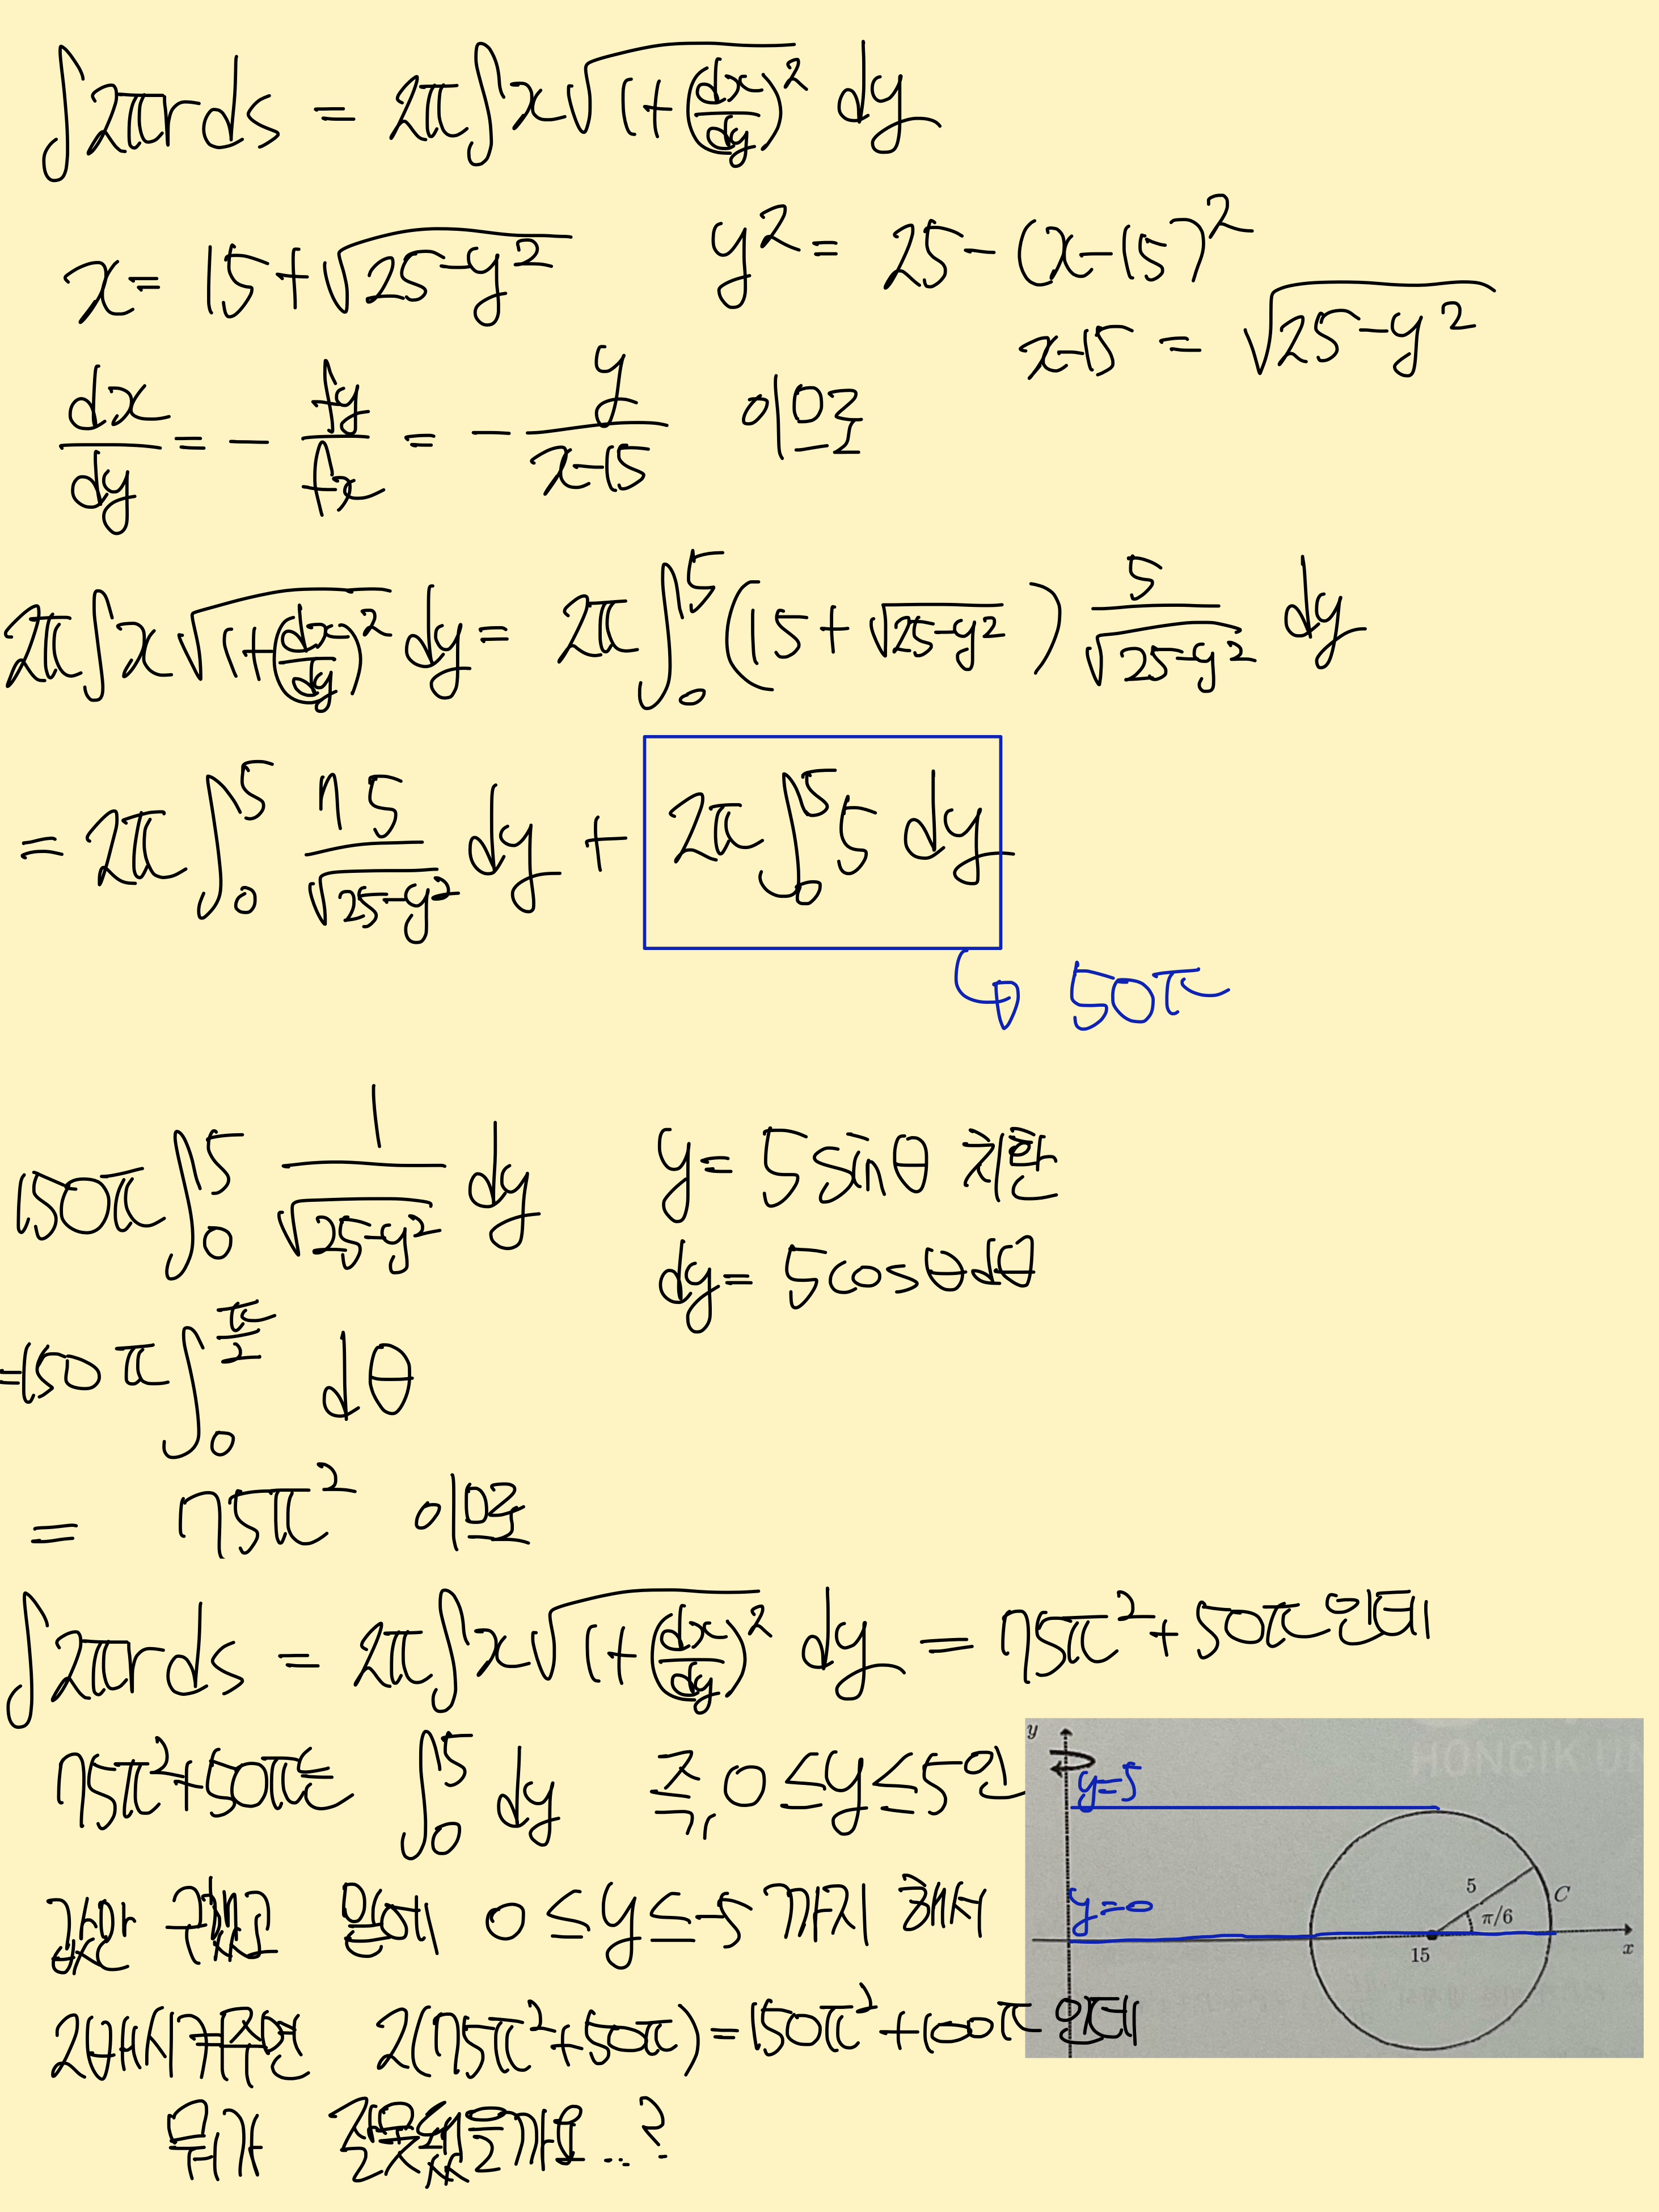 ∫2πrds = 2π∫x√(1+(dx/dy)²) dy
x = 15+√(25-y²)   y² = 25-(x-15)²
x-15 = √(25-y²)
dx/dy = - fy/fx = - y/(x-15) 이므로
2π∫x√(1+(dx/dy)²) dy = 2π∫₀⁵(15+√(25-y²)) 5/√(25-y²) dy
= 2π∫₀⁵ 75/√(25-y²) dy + 2π∫₀⁵ 5 dy
↳ 50π
150π∫₀⁵ 1/√(25-y²) dy   y = 5sinθ 치환
dy = 5cosθdθ
=150π∫₀^(π/2) dθ
= 75π² 이므로
∫2πrds = 2π∫x√(1+(dx/dy)²) dy = 75π²+50π 인데
75π²+50π는 ∫₀⁵ dy 즉, 0≤y≤5인
값만 구했고 밑에 0≤y≤-5 까지 해서
2배시켜주면 2(75π²+50π)=150π²+100π 인데
뭐가 잘못됐을까요...?
HONGIK UN
y
y=5
5
C
y=0
π/6
15
x